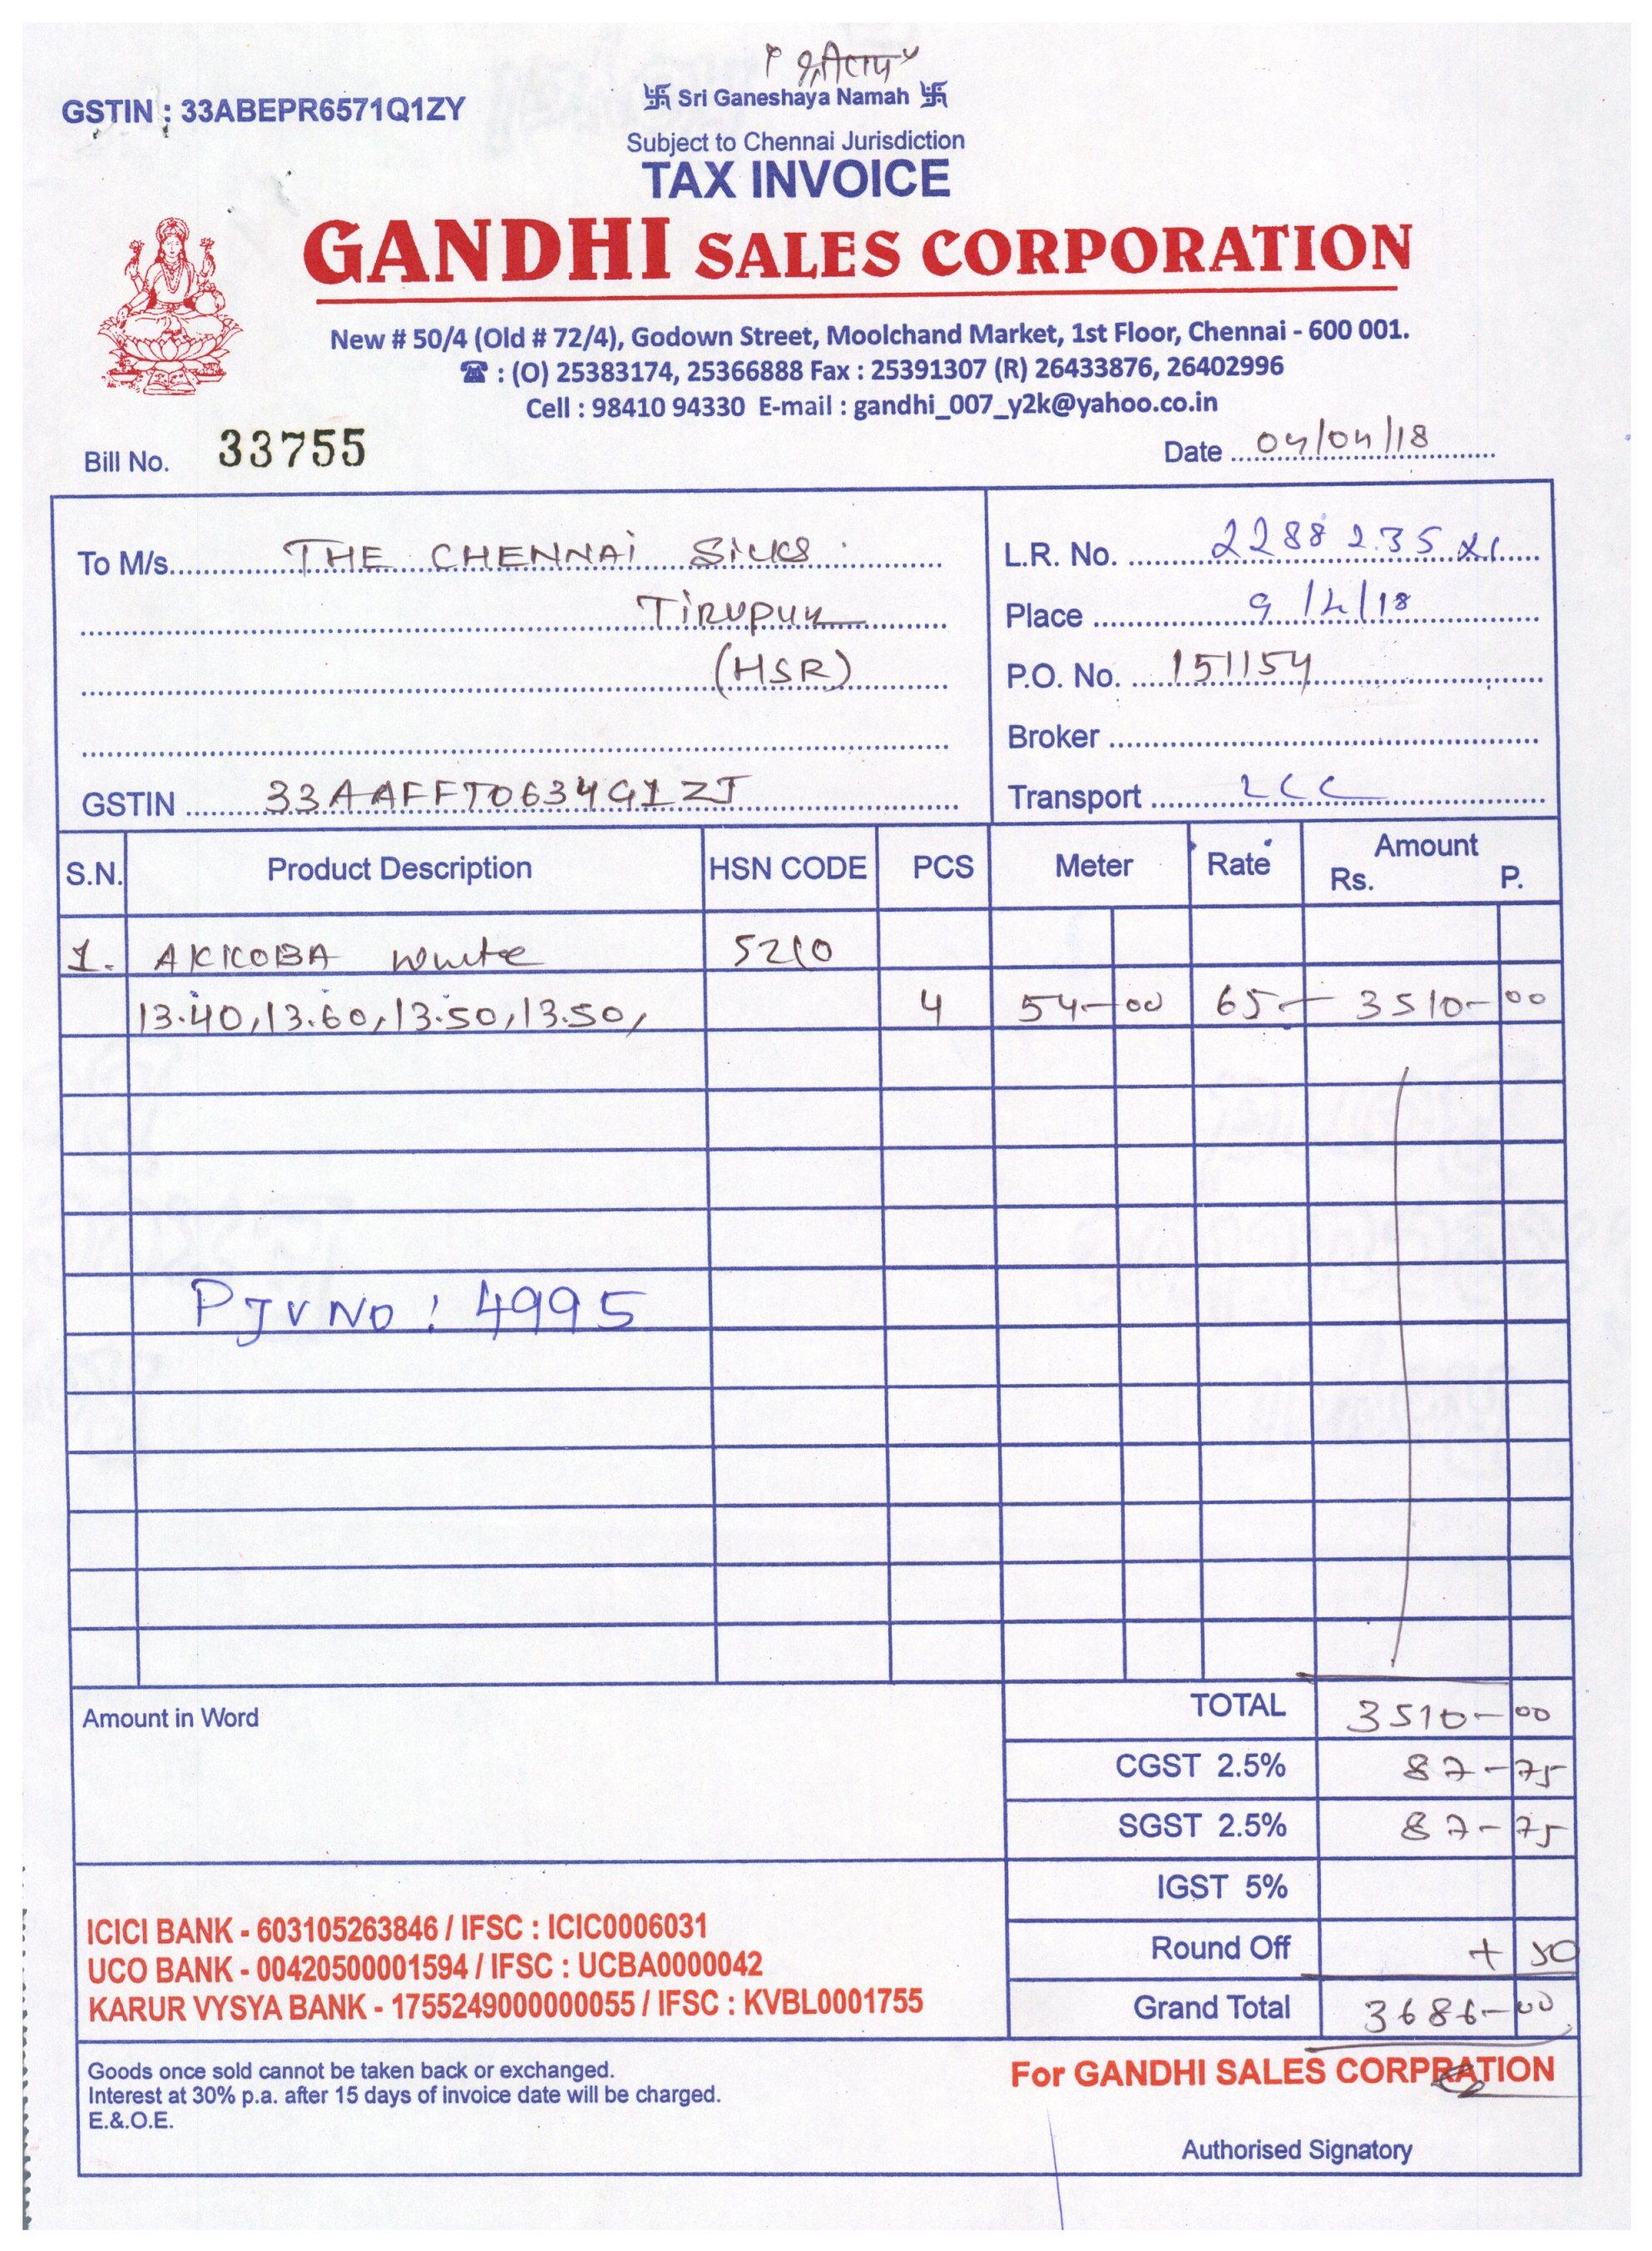 श्री
GSTIN : 33ABEPR6571Q1ZY
卐 Sri Ganeshaya Namah 卐
Subject to Chennai Jurisdiction
TAX INVOICE
GANDHI SALES CORPORATION
New # 50/4 (Old # 72/4), Godown Street, Moolchand Market, 1st Floor, Chennai - 600 001.
☎ : (O) 25383174, 25366888 Fax : 25391307 (R) 26433876, 26402996
Cell : 98410 94330 E-mail : gandhi_007_y2k@yahoo.co.in
Bill No. 33755 Date 04/04/18
To M/s. THE CHENNAI SILKS
Tirupur
(HSR)
GSTIN 33AAFFT0634G1ZJ
L.R. No. 2288 235
Place 9/4/18
P.O. No. 151154
Broker
Transport
S.N. Product Description HSN CODE PCS Meter Rate Amount Rs. P.
1. AKKOBA White 5210
13.40, 13.60, 13.50, 13.50, 4 54-00 65- 3510-00
PJV No : 4995
Amount in Word
TOTAL 3510-00
CGST 2.5% 87-75
SGST 2.5% 87-75
IGST 5%
Round Off + 50
Grand Total 3686-00
ICICI BANK - 603105263846 / IFSC : ICIC0006031
UCO BANK - 00420500001594 / IFSC : UCBA0000042
KARUR VYSYA BANK - 1755249000000055 / IFSC : KVBL0001755
Goods once sold cannot be taken back or exchanged.
Interest at 30% p.a. after 15 days of invoice date will be charged.
E.&.O.E.
For GANDHI SALES CORPRATION
Authorised Signatory